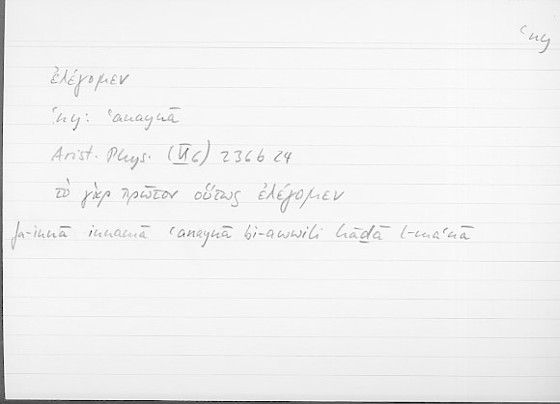 ʿny
ἐλέγομεν
ʿny: ʿanaynā
Arist. Phys. (VI 6) 236b 24
τὸ γὰρ πρῶτον οὕτως ἐλέγομεν
fa-innā innamā ʿanaynā bi-awwili hāḏā l-maʿnā